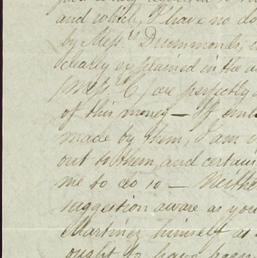 and which, I have no do
by Mess.rs Drummonds,
clearly explained in the a
are perfectly
of this money — If
made by them, I am
out to them, and certain
me to do so — Neithe
suggestion aware as you
Martinez himself as
ought to have been